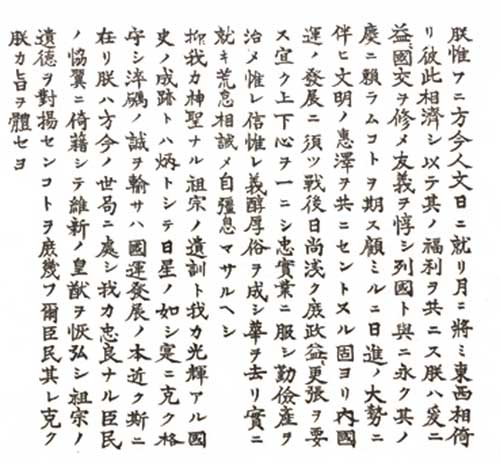 朕惟フニ方今人文日ニ就リ月ニ將ミ東西相倚
リ彼此相濟シ以テ其ノ福利ヲ共ニス朕ハ爰ニ
益〻國交ヲ修メ友義ヲ惇シ列國ト與ニ永ク其ノ
慶ニ賴ラムコトヲ期ス顧ミルニ日進ノ大勢ニ
伴ヒ文明ノ惠澤ヲ共ニセントスル固ヨリ內國
運ノ發展ニ須ツ戰後日尚淺ク庶政益〻更張ヲ要
ス宜ク上下心ヲ一ニシ忠實業ニ服シ勤儉產ヲ
治メ惟レ信惟レ義醇厚俗ヲ成シ華ヲ去リ實ニ
就キ荒怠相誡メ自彊息マサルヘシ
抑我カ神聖ナル祖宗ノ遺訓ト我カ光輝アル國
史ノ成跡トハ炳トシテ日星ノ如シ寔ニ克ク恪
守シ淬礪ノ誠ヲ輸サハ國運發展ノ本近ク斯ニ
在リ朕ハ方今ノ世局ニ處シ我カ忠良ナル臣民
ノ協翼ニ倚藉シテ維新ノ皇猷ヲ恢弘シ祖宗ノ
遺德ヲ對揚センコトヲ庶幾フ爾臣民其レ克ク
朕カ旨ヲ體セヨ